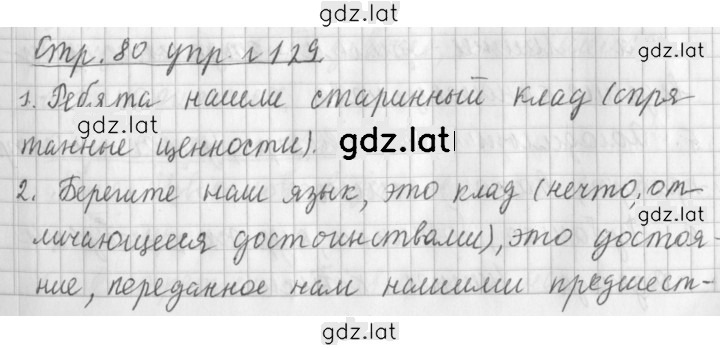 gdz.lat
Стр. 80 упр. № 129
gdz.lat
1. Ребята нашли старинный клад (спря
gdz.lat
танные ценности).
gdz.lat
2. Берегите наш язык, это клад (нечто, от
gdz.lat
личающееся достоинствами), это достоя-
ние, переданное нам нашими предшест-
gdz.lat